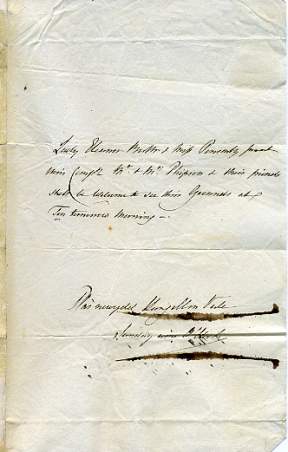 Lady Eleanor Butler & Miss Ponsonby present
their Compts Mr. & Mrs. Phipson & their friends
shall be Welcome to see their Grounds at
Ten tomorrow Morning —
Plas newydd Llangollen Vale
Sunday nine O'Clock